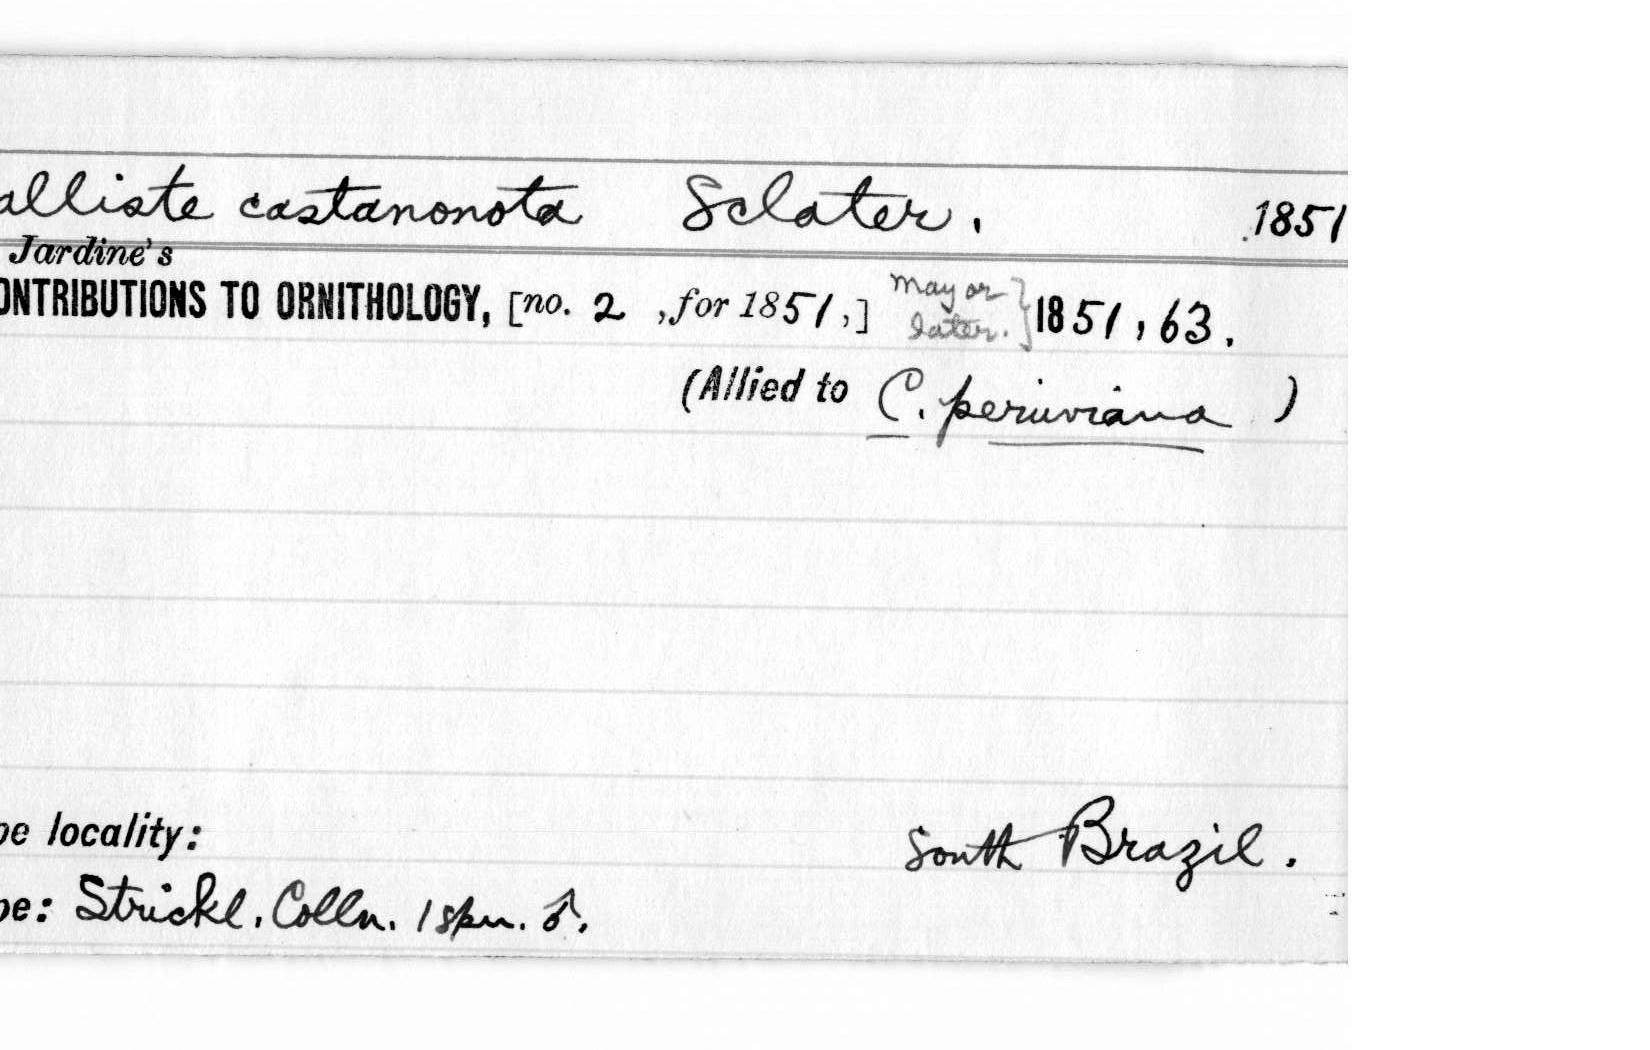 alliste castanonota Sclater. 1851
Jardine's
ONTRIBUTIONS TO ORNITHOLOGY, [no. 2 ,for 1851,] May or later.} 1851, 63.
(Allied to C. peruviana )
pe locality: South Brazil.
pe: Strickl. Colln. 1 spn. ♂.